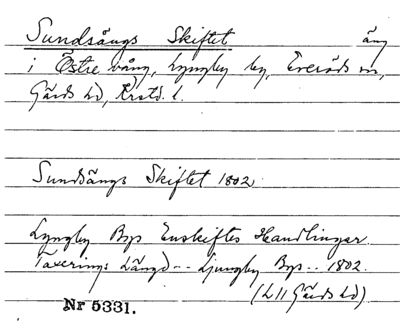 Sundsängs Skiftet äng
i Östre vång, Lyngby by, Everöds sn,
Gärds hd, Krstds l.
Sundsängs Skiftet 1802
Lyngby Bys Enskiftes Handlingar
Taxerings Längd -- Ljungby Bys -- 1802.
(L11 Gärds hd)
Nr 5331.